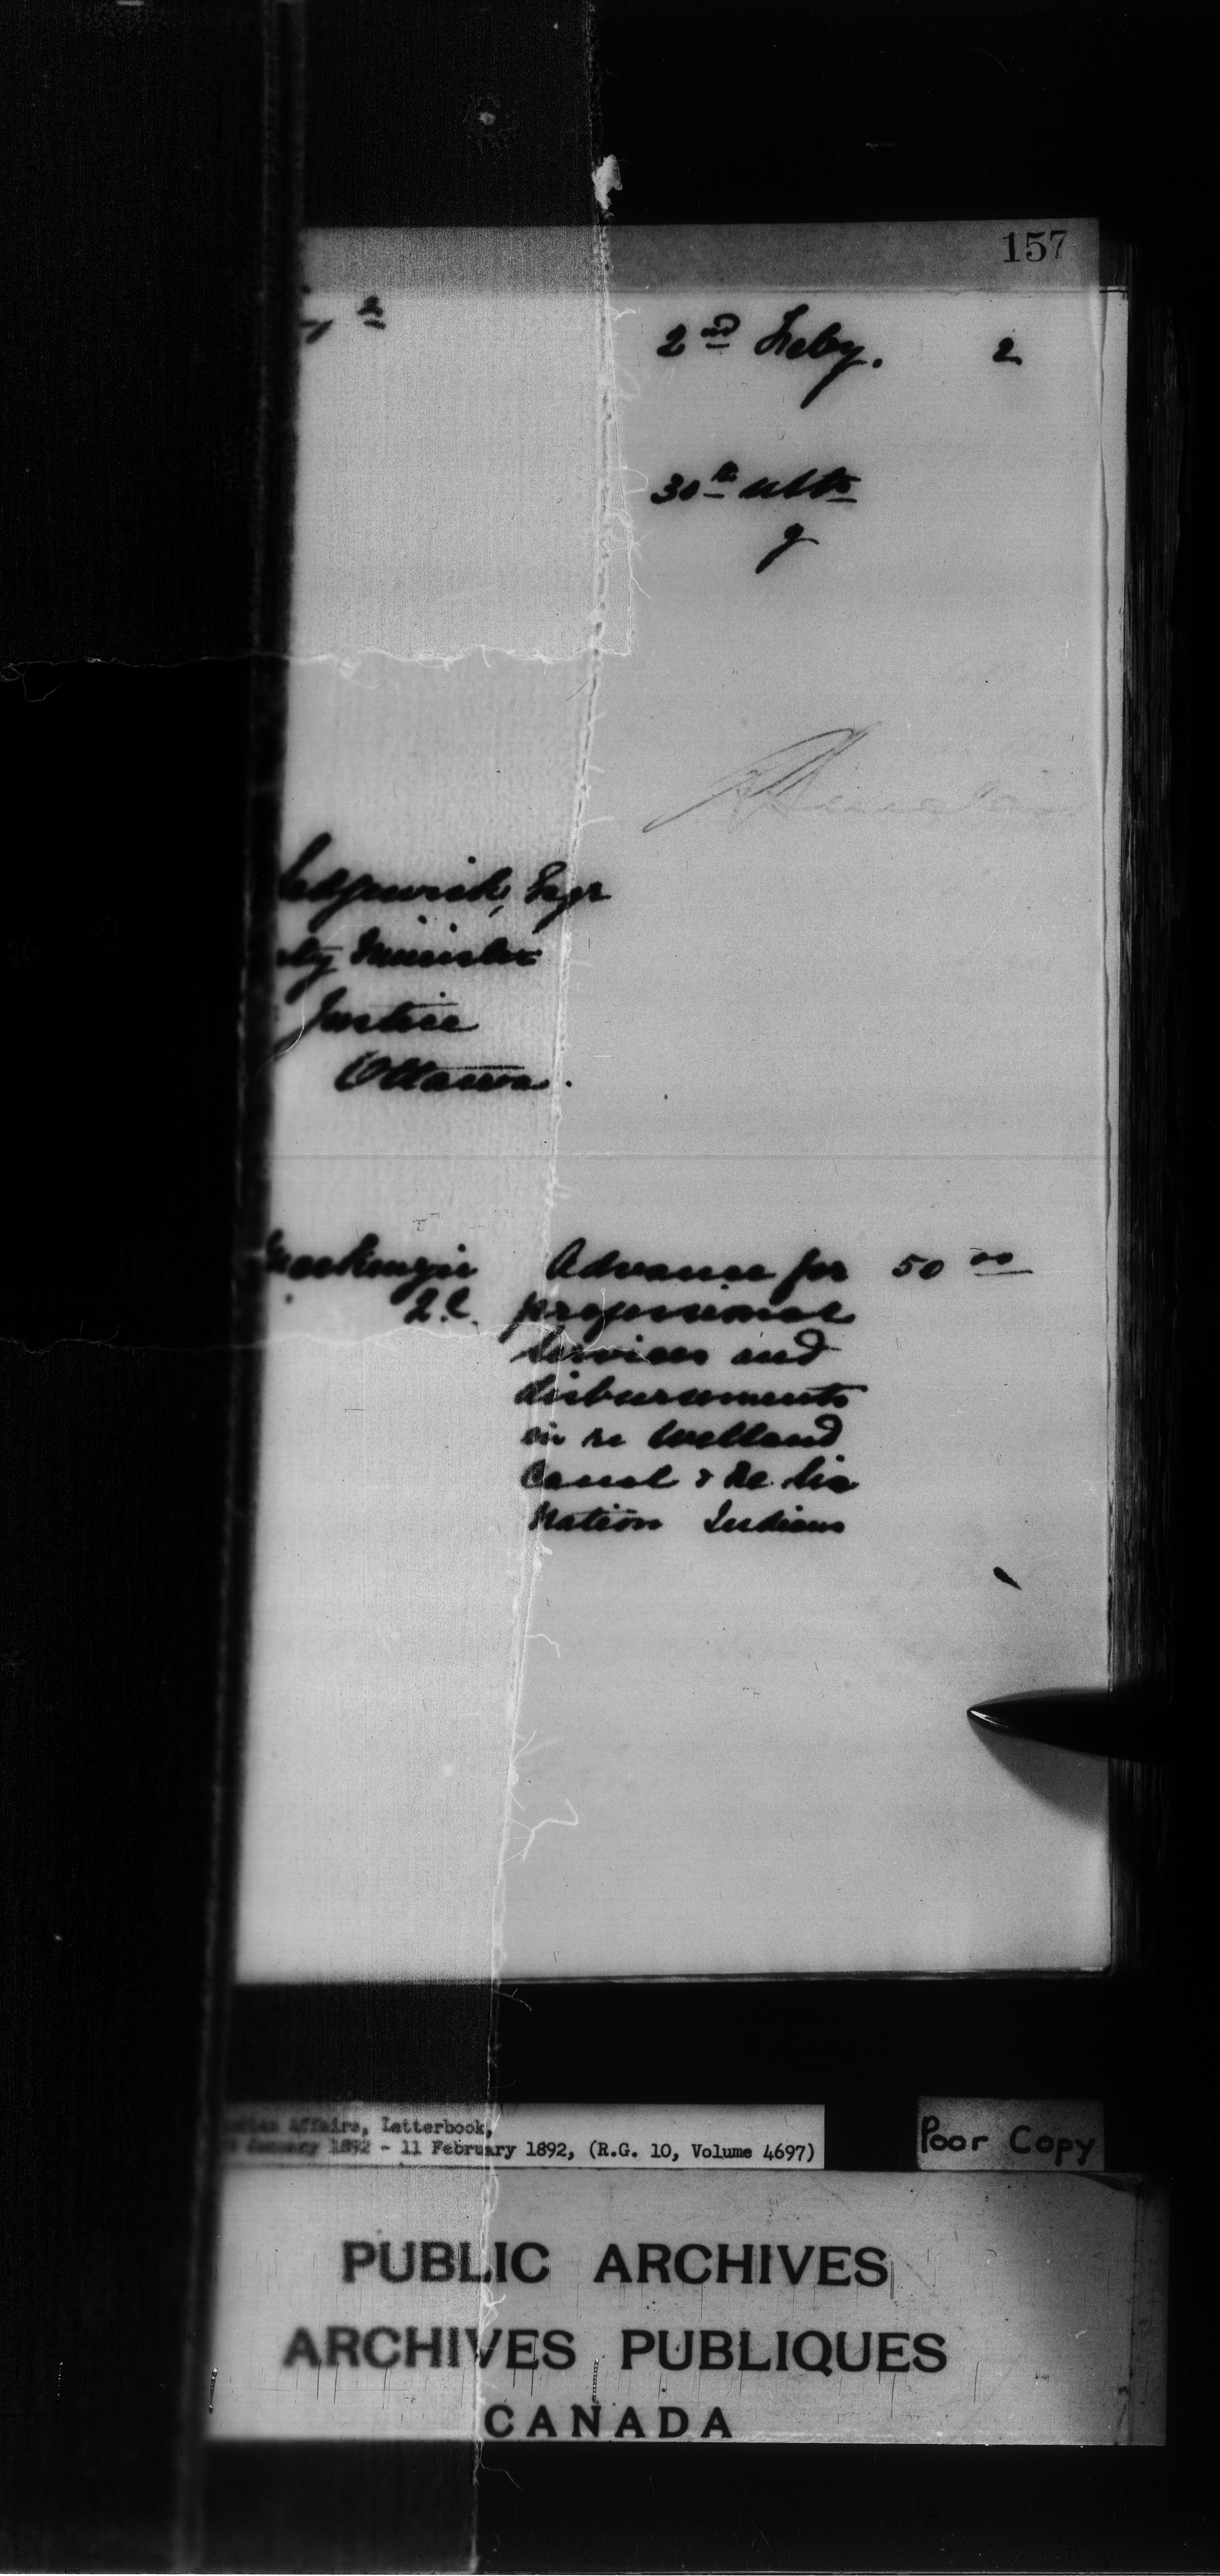 157
2nd Feby. 2
30th ulto
g
edgewick, Esqr
ty Minister
Justice
Ottawa.
MacKenzie Advance for 50 00
Q.C. professional
Services and
disbursements
in re Welland
Canal & Re Six
Nation Indians
Affairs, Letterbook,
January 1892 - 11 February 1892, (R.G. 10, Volume 4697)
Poor Copy
PUBLIC ARCHIVES
ARCHIVES PUBLIQUES
CANADA